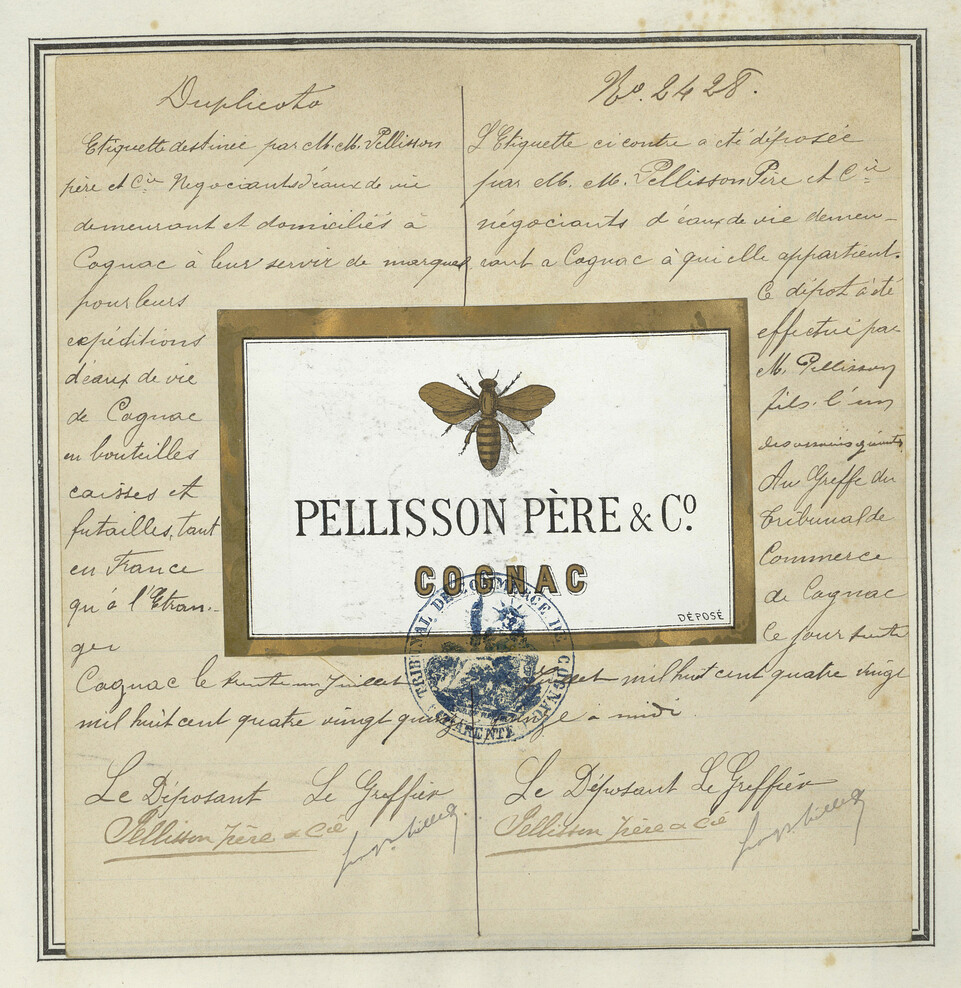 Duplicata
Etiquette destinée par M.M. Pellisson
père et Cie Negociants d'eaux de vie
demeurant et domiciliés à
Cognac à leur servir de marques
pour leurs
expéditions
d'eaux de vie
de Cognac
en bouteilles
caisses et
futailles, tant
en France
qu'à l'Etran-
ger
Cognac le trente un Juillet
mil huit cent quatre vingt
Le Déposant Le Greffier
Pellisson père & Cie
No. 2428.
L'Etiquette ci contre a été déposée
par M. M. Pellisson Père et Cie
négociants d'eaux de vie demeu-
rant a Cognac à qui elle appartient.
Ce dépot a été
effectué par
M. Pellisson
fils. l'un
Au Greffe du
Tribunal de
Commerce
de Cognac
Ce jour trente
mil huit cent quatre vingt
à midi
Le Déposant Le Greffier
Pellisson père & Cie
PELLISSON PÈRE & Co.
COGNAC
DÉPOSÉ
TRIBUNAL DE COMMERCE DE COGNAC
CHARENTE